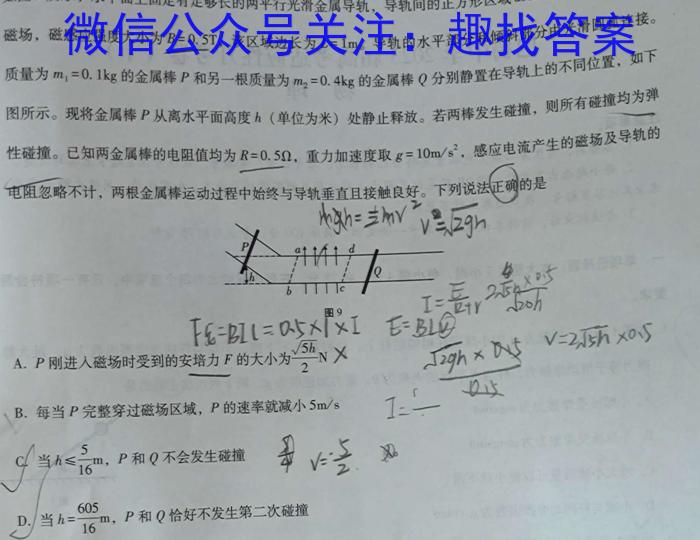 水平面上固定有足够长的两平行光滑金属导轨，导轨间的正方形区域
微信公众号关注：趣找答案
磁场，磁感应强度大小为B=0.5T，该区域边长为L=1m，导轨的水平部分和倾斜部分由光滑圆弧连接。
质量为 m₁=0.1kg 的金属棒 P 和另一根质量为 m₂=0.4kg 的金属棒 Q 分别静置在导轨上的不同位置，如下
图所示。现将金属棒 P 从离水平面高度 h（单位为米）处静止释放。若两棒发生碰撞，则所有碰撞均为弹
性碰撞。已知两金属棒的电阻值均为 R=0.5Ω，重力加速度取 g=10m/s²，感应电流产生的磁场及导轨的
电阻忽略不计，两根金属棒运动过程中始终与导轨垂直且接触良好。下列说法正确的是
mgh=½mv² v=√2gh
P a f e d
h Q
b c
图9
I=E/R+r 2√5h×0.5/√20h
F安=BIL=0.5×1×I E=BLV
√2gh×0.5/0.5 V=2√5h×0.5
A. P 刚进入磁场时受到的安培力 F 的大小为√5h/2 N ×
I=
B. 每当 P 完整穿过磁场区域，P 的速率就减小 5m/s
C. 当 h≤5/16 m，P 和 Q 不会发生碰撞
V=5/2
D. 当 h=605/16 m，P 和 Q 恰好不发生第二次碰撞